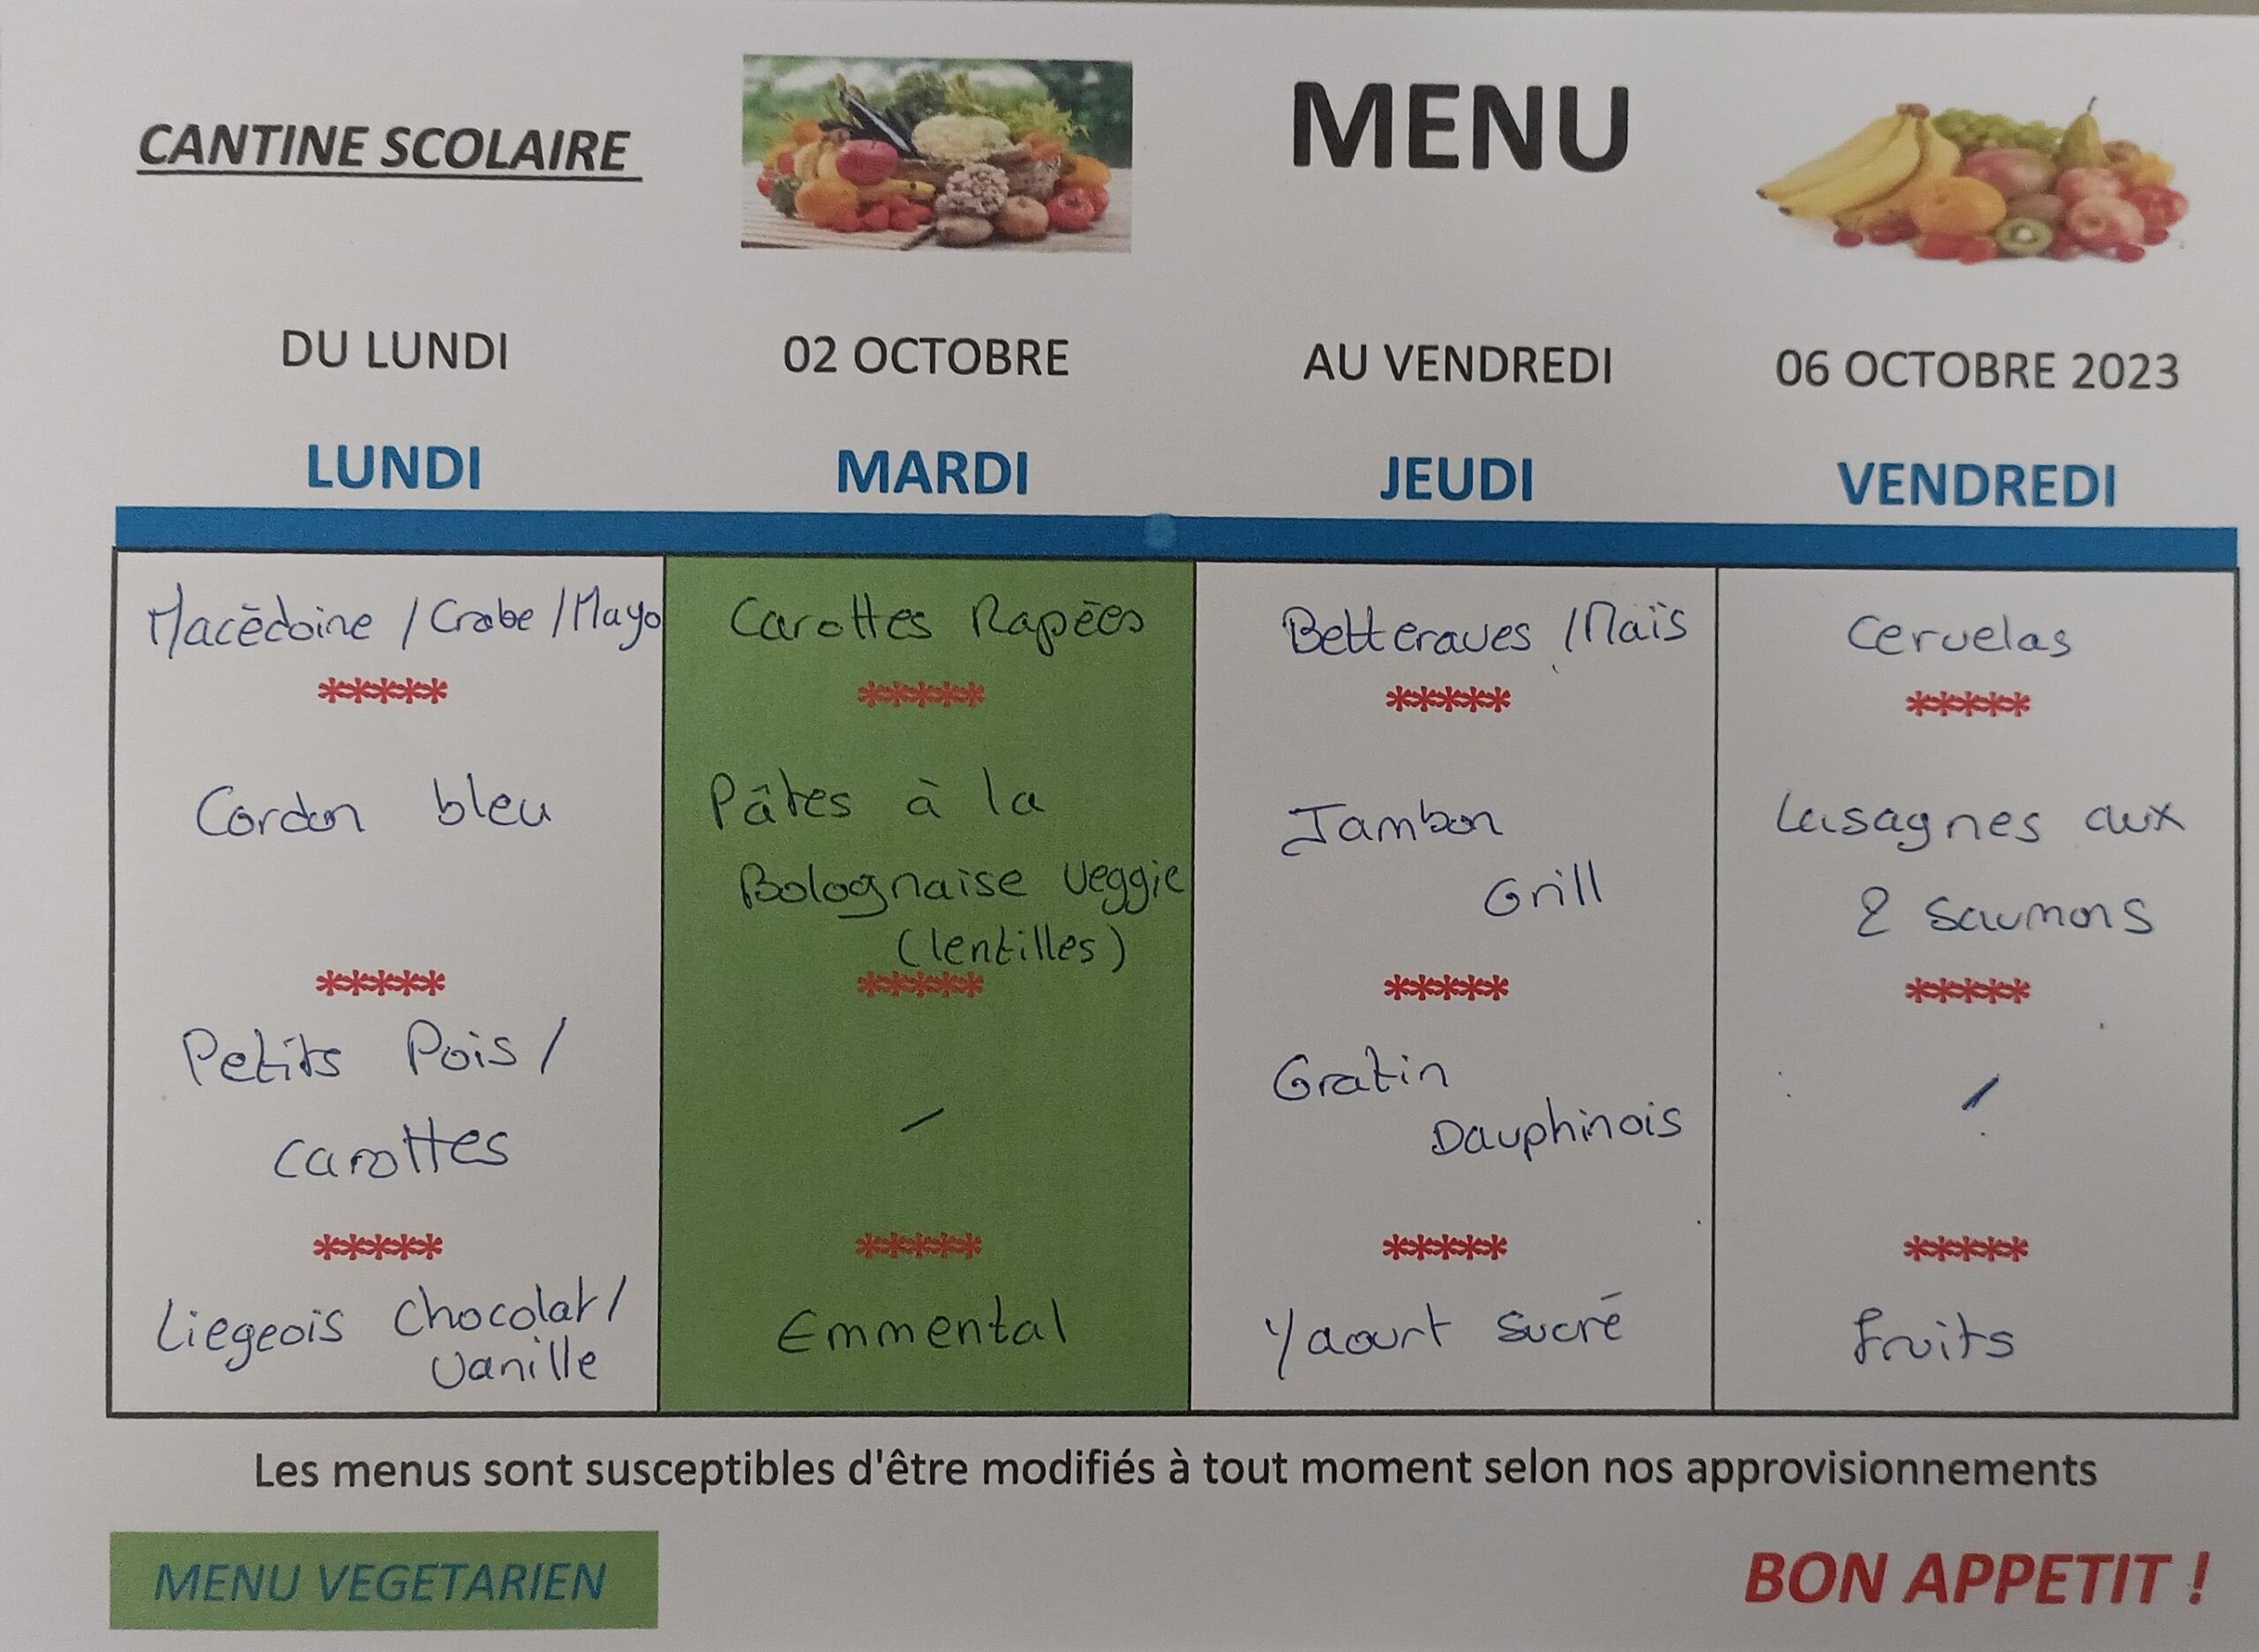 CANTINE SCOLAIRE
MENU
DU LUNDI 02 OCTOBRE AU VENDREDI 06 OCTOBRE 2023
LUNDI
Macédoine / Crabe / Mayo
*****
Cordon bleu
*****
Petits Pois /
carottes
*****
Liegeois Chocolat /
Vanille
MARDI
Carottes Rapées
*****
Pâtes à la
Bolognaise Veggie
(lentilles)
*****
/
*****
Emmental
JEUDI
Betteraves / Maïs
*****
Jambon
Grill
*****
Gratin
Dauphinois
*****
Yaourt sucré
VENDREDI
Cervelas
*****
Lasagnes aux
2 saumons
*****
/
*****
fruits
Les menus sont susceptibles d'être modifiés à tout moment selon nos approvisionnements
MENU VEGETARIEN
BON APPETIT !